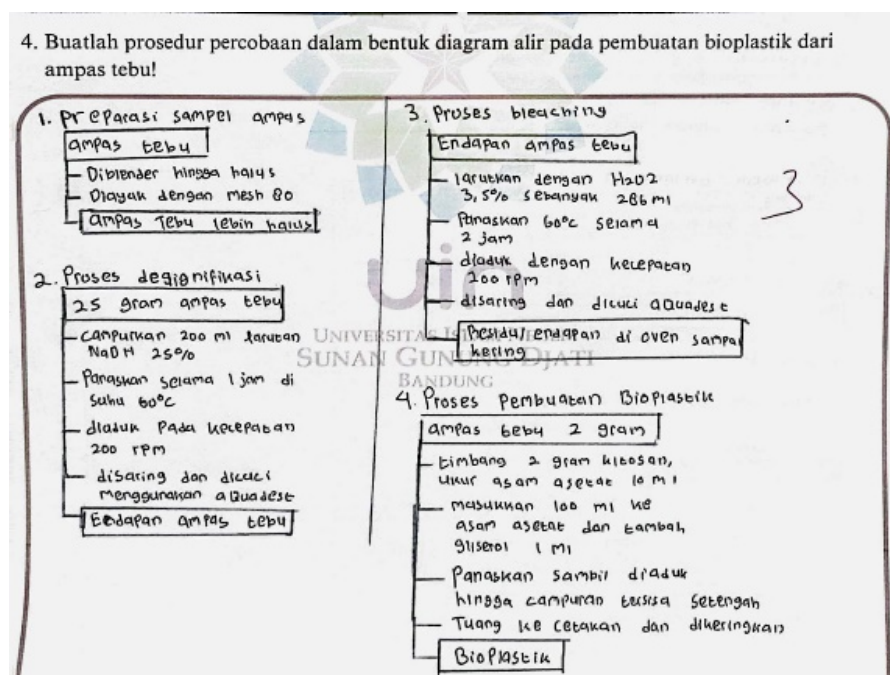 4. Buatlah prosedur percobaan dalam bentuk diagram alir pada pembuatan bioplastik dari
ampas tebu!
1. Preparasi sampel ampas
ampas tebu
Diblender hingga halus
Diayak dengan mesh 80
ampas Tebu lebih halus
2. Proses degignifikasi
25 gram ampas tebu
campurkan 200 ml larutan
NaOH 25%
Panaskan selama 1 jam di
suhu 60°C
diaduk Pada kecepatan
200 rpm
disaring dan dicuci
menggunakan aquadest
Endapan ampas tebu
3. Proses bleaching
Endapan ampas tebu
larutkan dengan H2O2
3,5% sebanyak 286 ml
Panaskan 60°C selama
2 jam
diaduk dengan kecepatan
200 rpm
disaring dan dicuci aquadest
Residu/endapan di oven sampai
kering
3
4. Proses Pembuatan Bioplastik
ampas tebu 2 gram
timbang 2 gram kitosan,
ukur asam asetat 10 ml
masukkan 100 ml ke
asam asetat dan tambah
gliserol 1 ml
Panaskan sambil diaduk
hingga campuran tersisa setengah
Tuang ke cetakan dan dikeringkan
Bioplastik
uin
UNIVERSITAS ISLAM NEGERI
SUNAN GUNUNG DJATI
BANDUNG